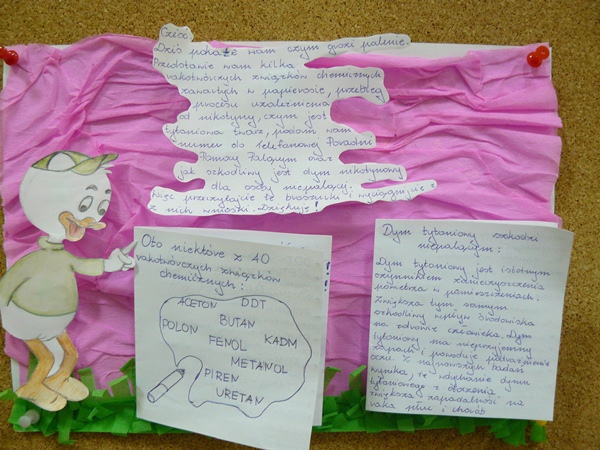 Cześć
Dziś pokażę wam czym grozi palenie.
Przedstawię wam kilka
rakotwórczych związków chemicznych
zawartych w papierosie, przebieg
procesu uzależnienia
od nikotyny, czym jest
tytoniowa twarz, podam wam
numer do Telefonicznej Poradni
Pomocy Palącym oraz
jak szkodliwy jest dym nikotynowy
dla osoby niepalącej.
Więc przeczytajcie te broszurki i wyciągnijcie z
nich wnioski. Dziękuję!
Oto niektóre z 40
rakotwórczych związków
chemicznych:
ACETON DDT
BUTAN
POLON KADM
FENOL
METANOL
PIREN
URETAN
Dym tytoniowy szkodzi
niepalącym:
Dym tytoniowy jest istotnym
czynnikiem zanieczyszczenia
powietrza w pomieszczeniach.
Zwiększa tym samym
szkodliwy wpływ środowiska
na zdrowie człowieka. Dym
tytoniowy ma nieprzyjemny
zapach i powoduje podrażnienie
oczu. Z najnowszych badań
wynika, że wdychanie dymu
tytoniowego z otoczenia
zwiększa zapadalność na
raka płuc i chorób